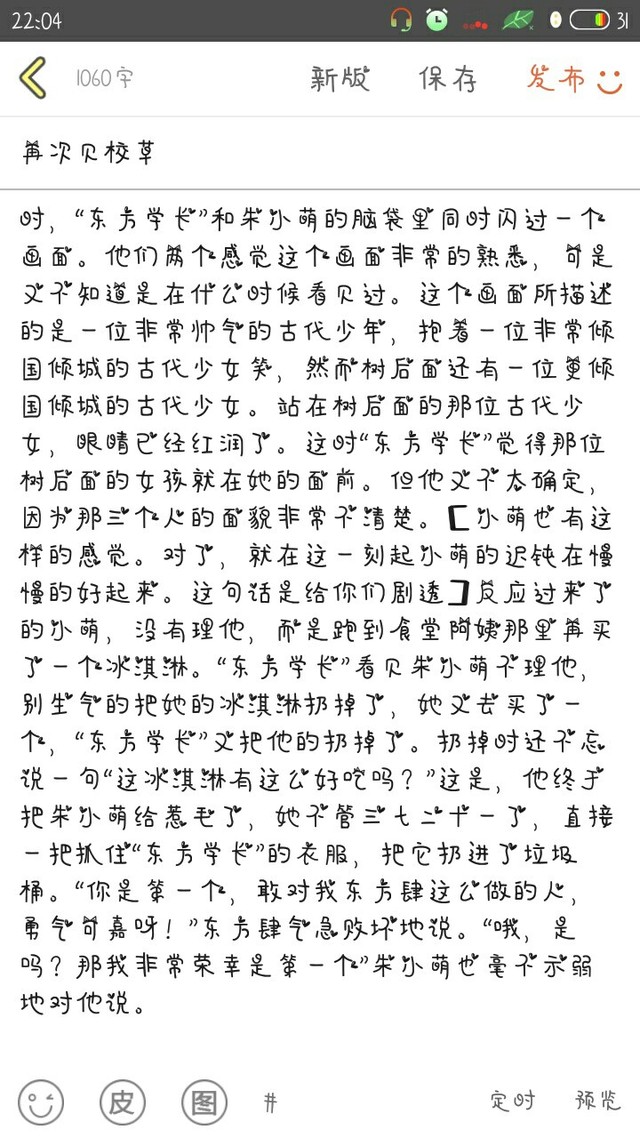 22:04
31
1060字
新版
保存
发布
再次贝校草
时，“东方学长”和朱小萌的脑袋里同时闪过一个
画面。他们两个感觉这个画面非常的熟悉，可是
又不知道是在什么时候看贝过。这个画面所描述
的是一位非常帅气的古代少年，抱着一位非常倾
国倾城的古代少女笑，然而树后面还有一位更倾
国倾城的古代少女。站在树后面的那位古代少
女，眼睛已经红润了。这时“东方学长”觉得那位
树后面的女孩就在她的面前。但他又不太确定，
因为那三个人的面貌非常不清楚。【小萌也有这
样的感觉。对了，就在这一刻起小萌的迟钝在慢
慢的好起来。这句话是给你们剧透】反应过来了
的小萌，没有理他，而是跑到食堂阿姨那里再买
了一个冰淇淋。“东方学长”看贝朱小萌不理他，
别生气的把她的冰淇淋扔掉了，她又去买了一
个，“东方学长”又把他的扔掉了。扔掉时还不忘
说一句“这冰淇淋有这么好吃吗？”这是，他终于
把朱小萌给惹毛了，她不管三七二十一了，直接
一把抓住“东方学长”的衣服，把它扔进了垃圾
桶。“你是第一个，敢对我东方肆这么做的人，
勇气可嘉呀！”东方肆气急败坏地说。“哦，是
吗？那我非常荣幸是第一个”朱小萌也毫不示弱
地对他说。
皮
图
#
定时
预览